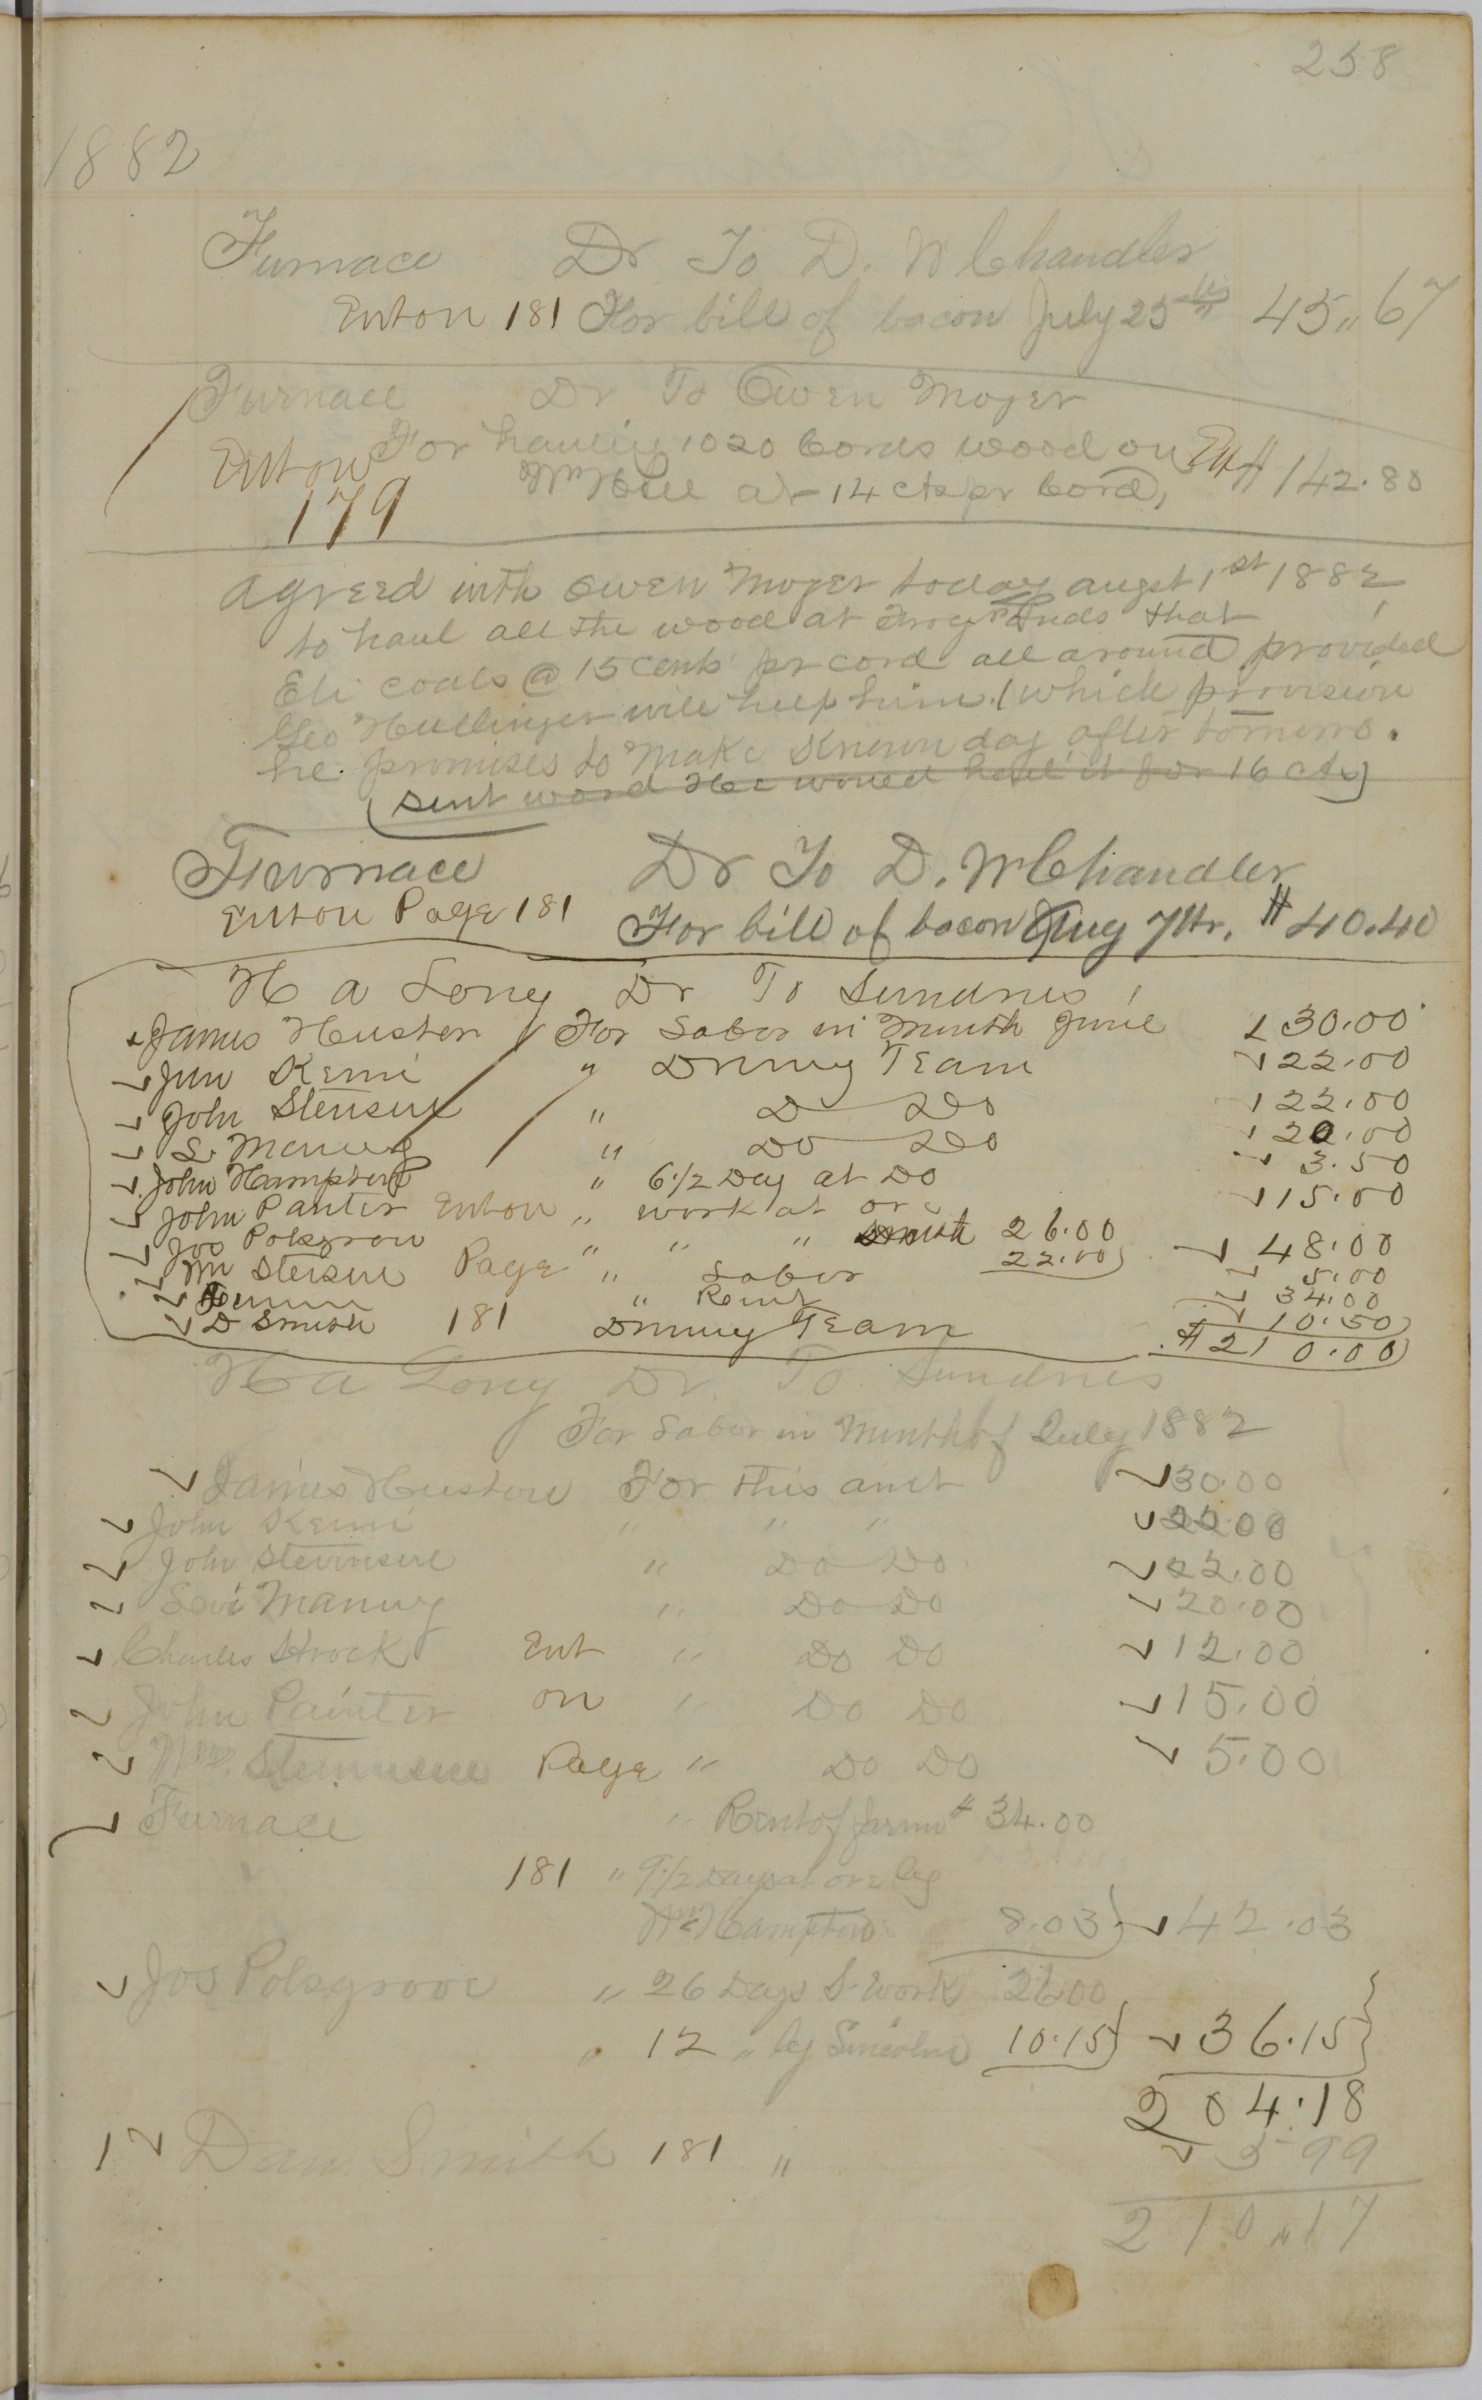 258
1882
Furnace Dr To D. W Chandler
Enton 181 For bill of bacon July 25th 45,,67
Furnace Dr To Owen Moyer
For hauling 1020 Cords wood on
Enton 179 Wm Hill at 14 cts pr Cord, $142.80
agreed with Owen Moyer today augst 1st 1882
to haul all the wood at that
Eli coals @ 15 Cents pr cord all around, provided
Geo Hullinger will help him. (which provision
he promises to make known day after tomorro.
(sent word He would haul it for 16 cts)
Furnace Dr To D. W Chandler
Enton Page 181 For bill of bacon Aug 7th. $40.40
H a Long Dr To Sundries
James Huston For Labor in Month June 30.00
Jno Kerni " Driving Team 22.00
John " D Do 22.00
L. Maning " Do Do 20.00
John Hampton " 6 1/2 Day at Do 3.50
John Panter Enton " work at ore 15.00
Jos Polsgrove " " " 26.00
Wm Page " Labor 22.00 48.00
5.00
" Rent 34.00
D Smith 181 Driving Team 10.50
$210.00
H a Long Dr. To Sundries
For Labor in Month of July 1882
James Huston For this amt 30.00
John Kerni " " " 22.00
John Stevinson " Do Do 22.00
Levi Maning " Do Do 20.00
Charles Strock Ent " Do Do 12.00
John Painter on " Do Do 15.00
Wm. Page " Do Do 5.00
Furnace " Rent of farm $34.00
181 " 9 1/2 Days at ore by
Wm Hampton 8.03 42.03
Jos Polsgrove " 26 Days S Work 26.00
" 12 " by Lincoln 10.15 36.15
204.18
Dan Smith 181 " 5 99
210,,17